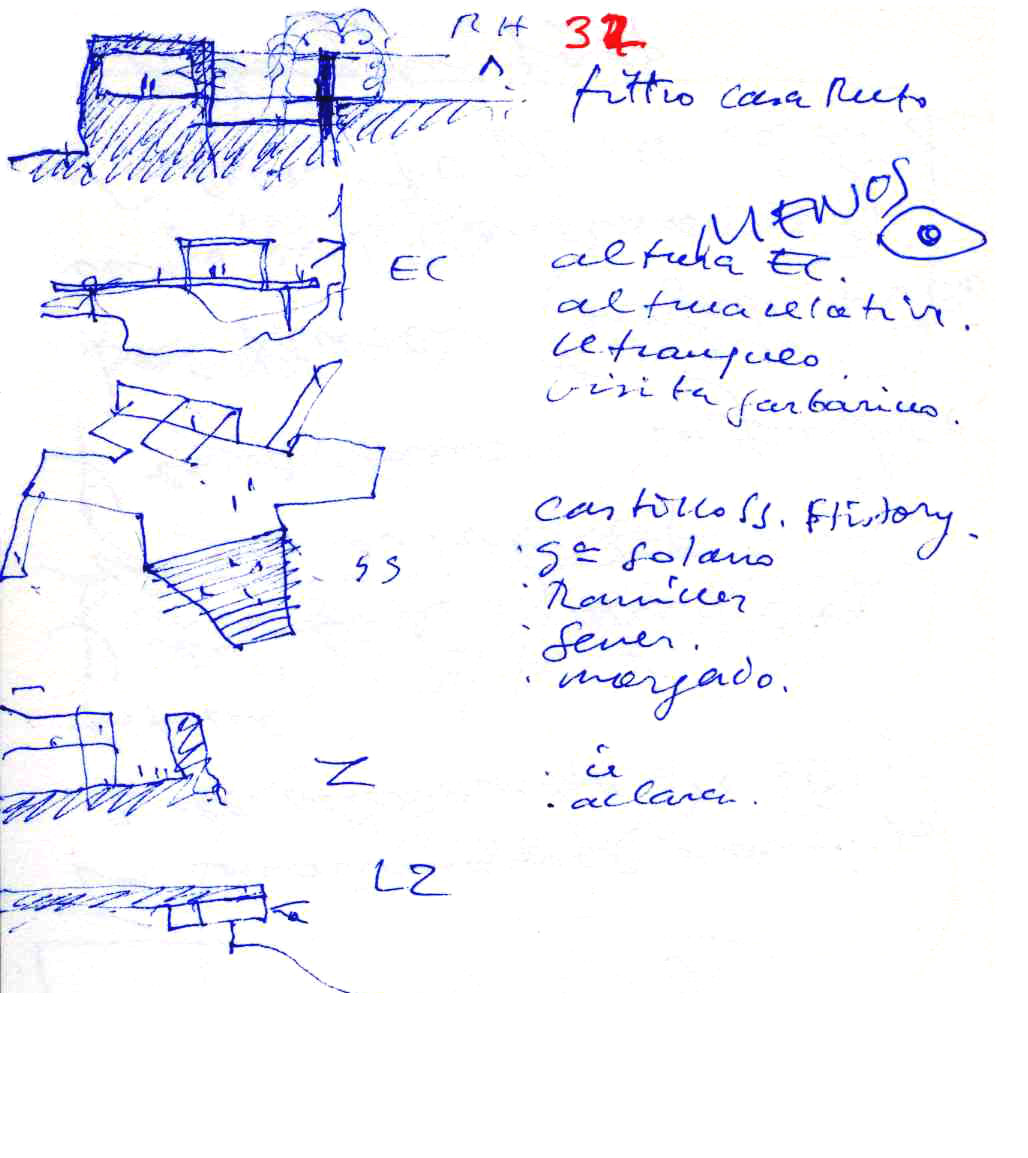 RH 32
filtro casa Reeto
MENOS
EC
altura EC.
altura relativ.
visita
castillo SS. History.
Gª Solano
Ramírez
Sener.
morgado.
SS
Z
ir
aclarar.
LZ